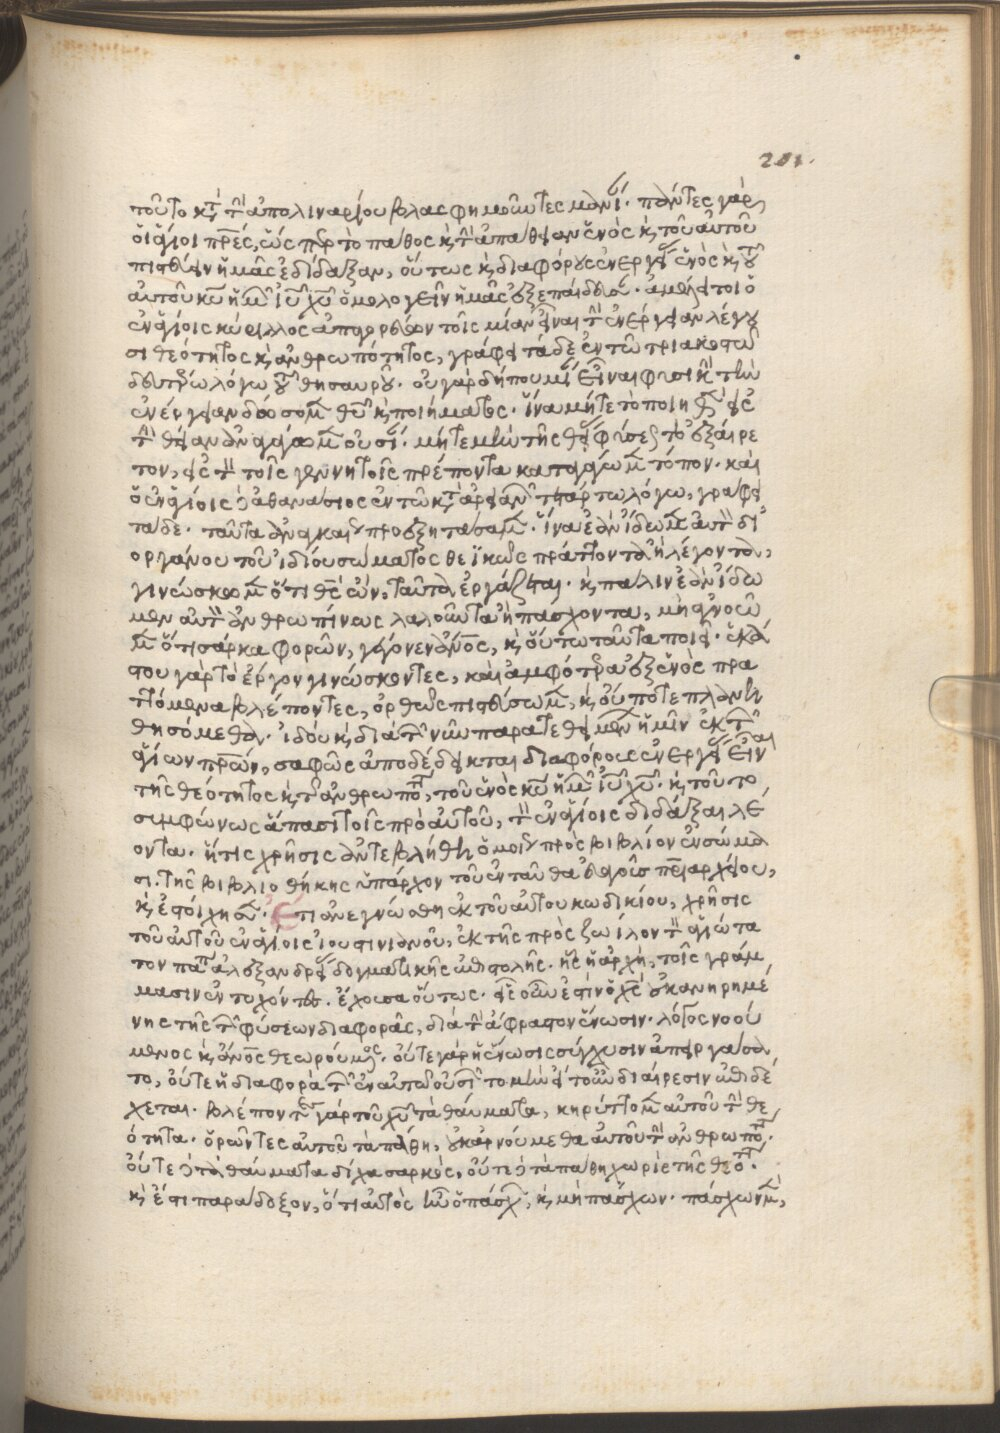 201.
τοῦτο κ(α)τ(ὰ) τ(ὴν) ἀπολιναρίου βλασφημοῦντες μανί(αν). πάντες γὰρ
οἱ ἅγιοι πρ(ατέ)ρες, ὡς περ τὸ πάθος κ(αὶ) τ(ὴν) ἀπάθειαν ἑνὸς κ(αὶ) τοῦ αὐτοῦ
πιστεύειν ἡμᾶς ἐδίδαξαν, οὕτως κ(αὶ) διαφόρους ἐνεργεί(ας) ἑνὸς κ(αὶ) τοῦ
αὐτοῦ κ(υρίο)υ ἡμ(ῶν) ἰ(ησο)ῦ χ(ριστο)ῦ ὁμολογεῖν ἡμᾶς ἐξεπαίδευσαν. ἀμέλει τοι ὁ
ἐν ἁγίοις κύριλλος ἀπαγορεύων τοῖς μίαν εἶναι τ(ὴν) ἐνέργειαν λέγου
σι θεότητος κ(αὶ) ἀνθρωπότητος, γράφει τάδε ἐν τῶ τριακοστῶ
δευτέρω λόγω τοῦ θησαυροῦ. οὐ γὰρ δήπου μί(αν) εἶναι φυσικ(ὴν) τὴν
ἐνέργειαν δώσομ(εν) θ(εο)ῦ κ(αὶ) ποιήματος. ἵνα μήτε τὸ ποιηθ(ὲν) εἰς
τ(ὴν) θείαν ἀναγάγωμ(εν) οὐσί(αν). μήτε μὴν τῆς θεί(ας) φύσεως τὸ ἐξαίρε
τον, εἰς τ(ὸν) τοῖς γεννητοῖς πρέποντα καταγάγωμ(εν) τόπον. καὶ
ὁ ἐν ἁγίοις δὲ ἀθανάσιος ἐν τῶ κ(α)τ(ὰ) ἀρειαν(ῶν) τετάρτω λόγω, γράφει
τάδε. ταῦτα ἀναγκαίως προεξητάσαμ(εν). ἵνα ἐὰν ἴδωμ(εν) αὐτ(ὸν) δι'
ὀργάνου τοῦ ἰδίου σώματος θεϊκῶς πράττοντα ἢ λέγοντα,
γινώσκωμ(εν) ὅτι θ(εὸ)ς ὢν, ταῦτα ἐργάζεται. κ(αὶ) πάλιν ἐὰν ἴδω
μεν αὐτ(ὸν) ἀνθρωπίνως λαλοῦντα ἢ πάσχοντα, μὴ ἀγνοῶ
μ(εν) ὅτι σάρκα φορῶν, γέγονεν ἄν(θρωπ)ος, κ(αὶ) οὕτω ταῦτα ποιεῖ. ἑκά
στου γὰρ τὸ ἔργον γινώσκοντες, καὶ ἀμφότερα ἐξ ἑνὸς πρα
ττόμενα βλέποντες, ὀρθῶς πιστεύσωμ(εν), κ(αὶ) οὔποτε πλανη
θησόμεθα. ἰδοὺ κ(αὶ) διὰ τ(ῶν) νῦν παρατεθειμένων ἡμῖν ἐκ τ(ῶν)
ἁγίων π(ατέ)ρων, σαφῶς ἀποδέδεικται διαφόρους ἐνεργεί(ας) εἶναι
τῆς θεότητος κ(αὶ) τ(ῆς) ἀνθρωπό(τητος), τοῦ ἑνὸς κ(υρίο)υ ἡμ(ῶν) ἰ(ησο)ῦ χ(ριστο)ῦ. κ(αὶ) τοῦτο
συμφώνως ἅπασι τοῖς πρὸ αὐτοῦ, τ(ὸν) ἐν ἁγίοις διδάξαι λέ
οντα. ἥτις χρῆσις ἀντεβλήθη ὁμοίως πρὸς βιβλίον ἐν σώμα
σι τῆς βιβλιοθήκης ὑπάρχον τοῦ ἐνταῦθα εὐαγοῦς π(ατ)ριαρχείου,
κ(αὶ) ἐστοίχησεν. Ἔτι ἀνεγνώσθη ἐκ τοῦ αὐτοῦ κωδικίου, χρῆσις
τοῦ αὐτοῦ ἐν ἁγίοις ἰουστινιανοῦ, ἐκ τῆς πρὸς ζωίλον τ(ὸν) ἁγιώτα
τον πάπ(αν) ἀλεξανδρεί(ας) δογματικῆς ἐπιστολῆς. ἧς ἡ ἀρχὴ, τοῖς γράμ
μασιν ἐντυχόντες. ἔχουσα οὕτως. εἷς οὖν ἐστὶν ὁ χ(ριστὸ)ς οὐκ ἀνηρημέ
νης τῆς τ(ῶν) φύσεων διαφορᾶς, διὰ τ(ὴν) ἄφραστον ἕνωσιν. λόγος νοού
μενος κ(αὶ) ἄν(θρωπ)ος θεωρούμ(εν)ος. οὔτε γὰρ ἡ ἕνωσις σύγχυσιν ἀπειργάσα
το, οὔτε ἡ διαφορὰ τ(ῶν) ἐν αὐτῶ οὐσι(ῶν) τομὴν εἴτουν διαίρεσιν ἐπιδέ
χεται. βλέποντ(ες) γὰρ τοῦ χ(ριστο)ῦ τὰ θαύματα, κηρύττομ(εν) αὐτοῦ τ(ὴν) θε
ότητα. ὁρῶντες αὐτοῦ τὰ πάθη, οὐκ ἀρνούμεθα αὐτοῦ τ(ὴν) ἀνθρωπό(τητα).
οὔτε δὲ τὰ θαύματα δίχα σαρκὸς, οὔτε δὲ τὰ πάθη χωρὶς τῆς θεό(τητος).
κ(αὶ) ἔστι παράδοξον, ὅτι αὐτὸς ἦν ὁ πάσχων, κ(αὶ) μὴ πάσχων. πάσχων μ(ὲν),